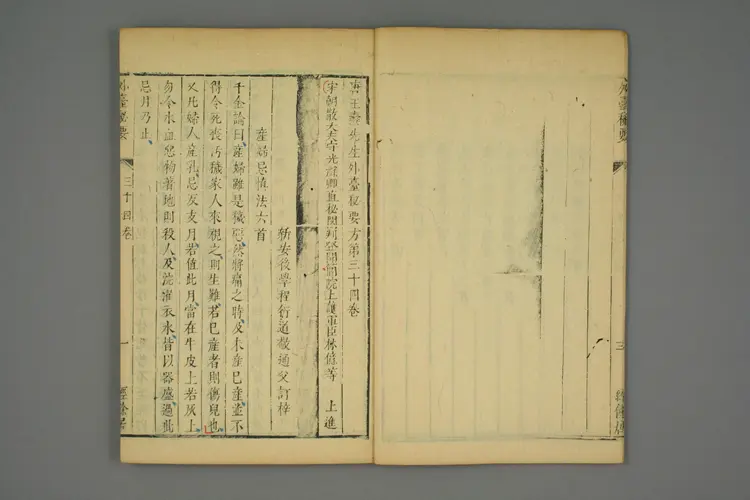 唐王燾先生外臺祕要方第三十四卷
宋朝散大夫守光祿卿直秘閣判登聞簡院上護軍臣林億等 上進
新安後學程衍道敬通父訂梓
產婦忌慎法六首
千金論曰產婦雖是穢惡然將痛之時及未產已產並不
得令死喪汚穢家人來視之則生難若已產者則傷兒也
又凡婦人產乳忌反支月若值此月當在牛皮上若灰上
勿令水血惡物著地則殺人及浣濯衣水皆以器盛過此
忌月乃止
外臺祕要
三十四卷
一
經餘居
外臺秘要
三